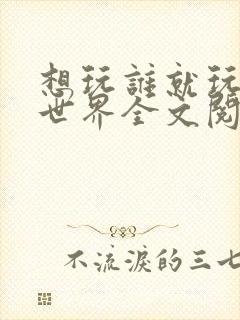 想玩誰就玩
世界全文閱
不流淚的三七